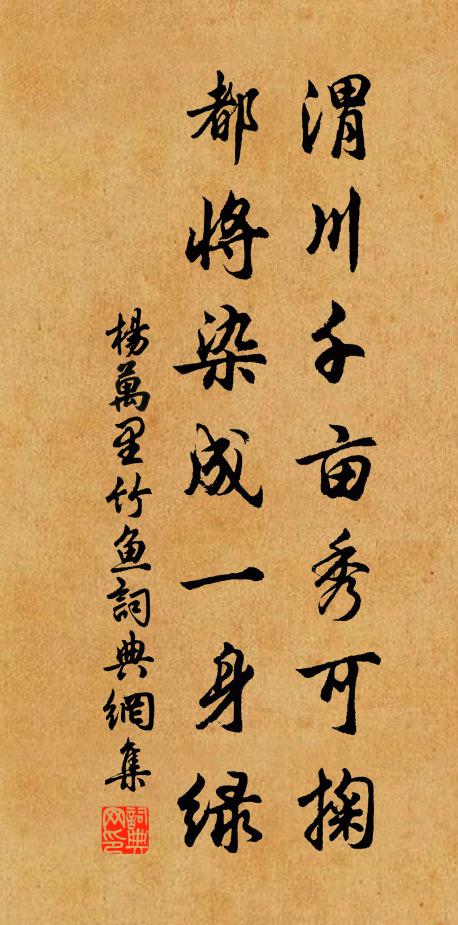 渭川千亩秀可掬
都将染成一身绿
楊萬里竹鱼詞典網集
詞典网印